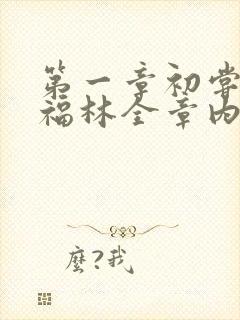 第一章初嘗
福林全章内
麼?我